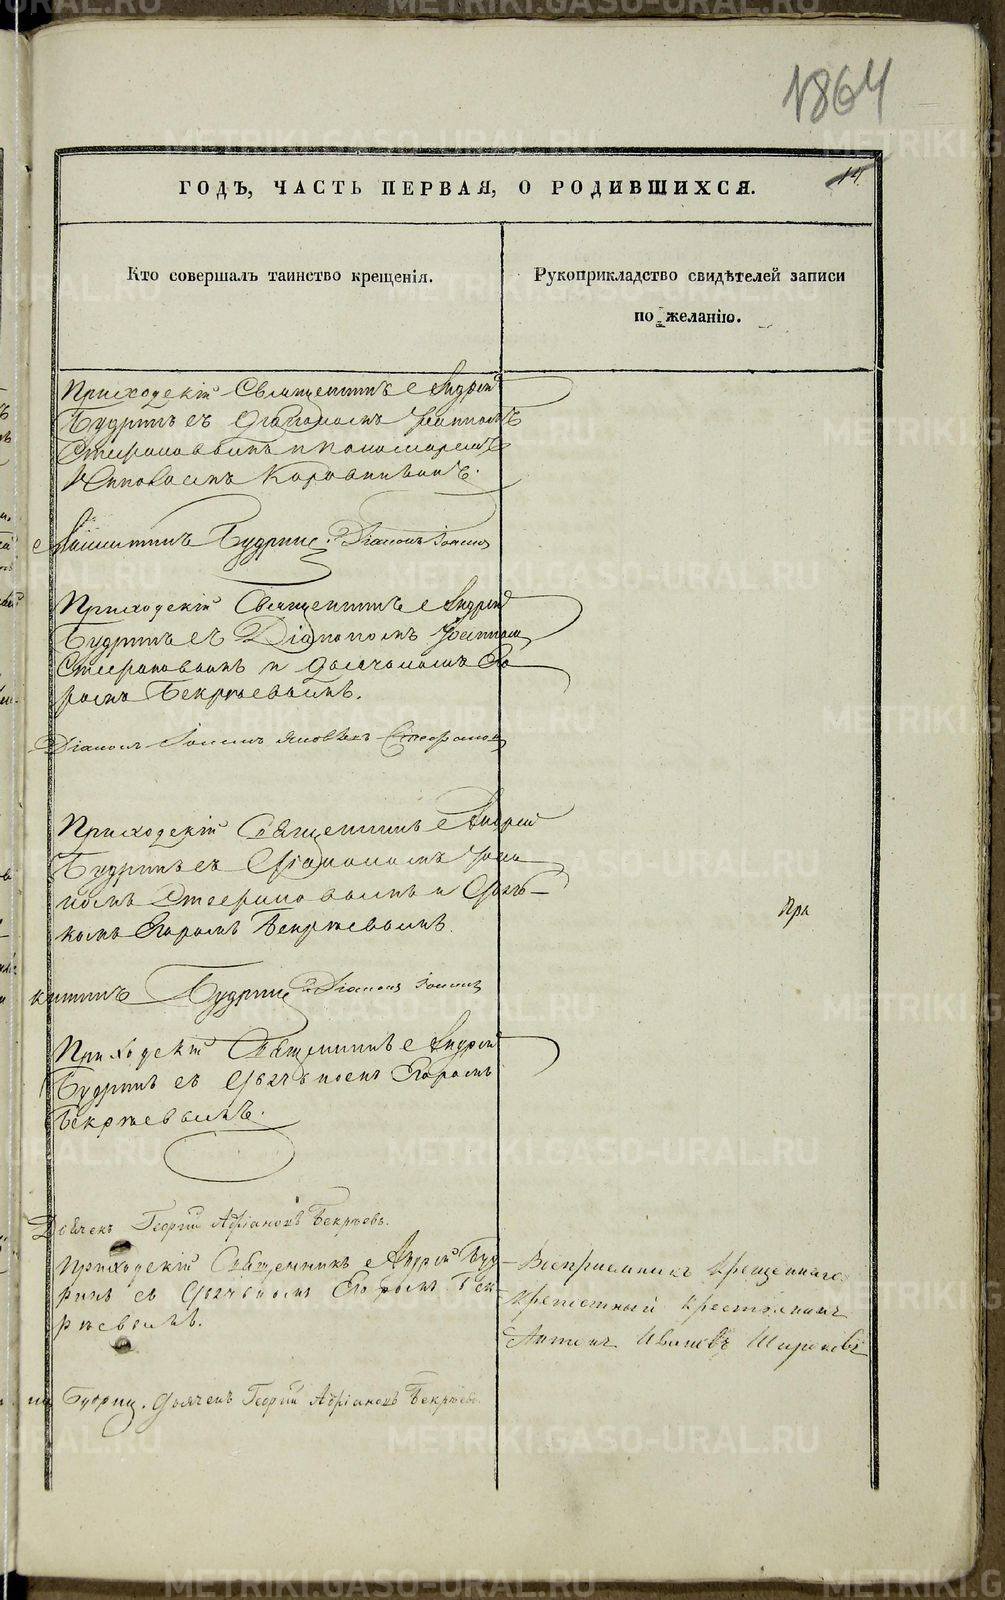 1864
14.
ГОДЪ, ЧАСТЬ ПЕРВАЯ, О РОДИВШИХСЯ.
Кто совершалъ таинство крещенія.
Рукоприкладство свидѣтелей записи
по желанію.
Приходскій Священникъ Андрей
Будринъ съ Діакономъ Іоанномъ
Стефановымъ и пономаремъ
Коровинымъ.
Будринъ. Діаконъ Іоаннъ
Приходскій Священникъ Андрей
Будринъ съ Діакономъ Іоанномъ
Стефановымъ и дьячкомъ Его-
ромъ Бекрѣевымъ.
Діаконъ Іоаннъ Яковлевъ Стефановъ
Приходскій Священникъ Андрей
Будринъ съ Діакономъ Іоан-
номъ Стефановымъ и Дьяч-
комъ Егоромъ Бекрѣевымъ.
Будринъ Діаконъ Іоаннъ
При
Приходскій Священникъ Андрей
Будринъ съ Дьячькомъ Егоромъ
Бекрѣевымъ.
Дьячекъ Георгій Адріановъ Бекрѣевъ.
Приходскій Священникъ Андрей Буд-
ринъ съ Дьячькомъ Егоромъ Бек-
рѣевымъ.
Воспріемникъ крещеннаго
крепостный крестьянинъ
Антонъ Ивановъ Широковъ
Будрин. Дьячекъ Георгій Адріановъ Бекрѣевъ.
METRIKI.GASO-URAL.RU